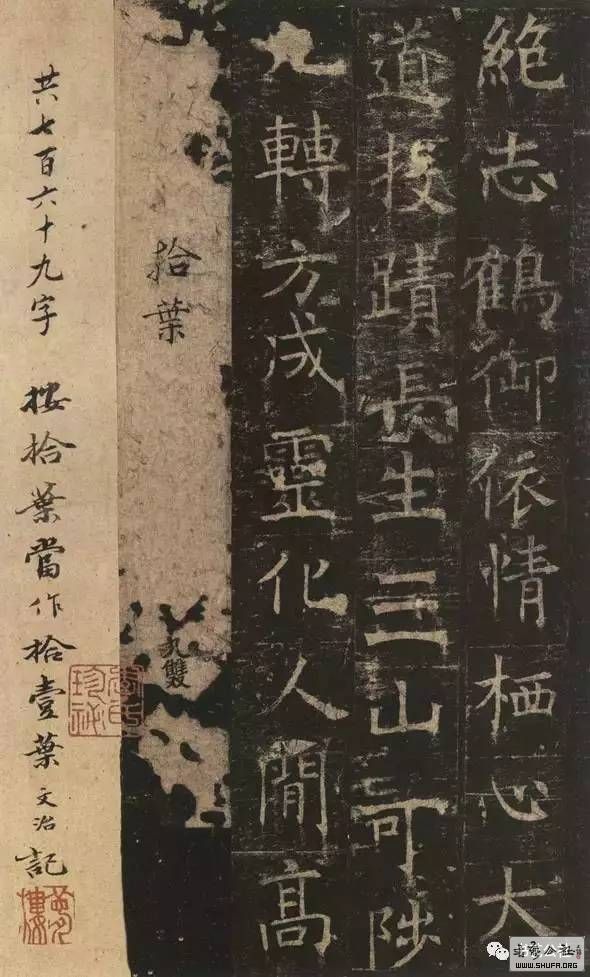 絶志鶴御依情栖心大
道投蹟長生三山可陟
九轉方成靈化人閒高
拾葉
共七百六十九字 按拾葉當作拾壹葉 文治記
夢樓
書法公社
www.SHUFA.ORG